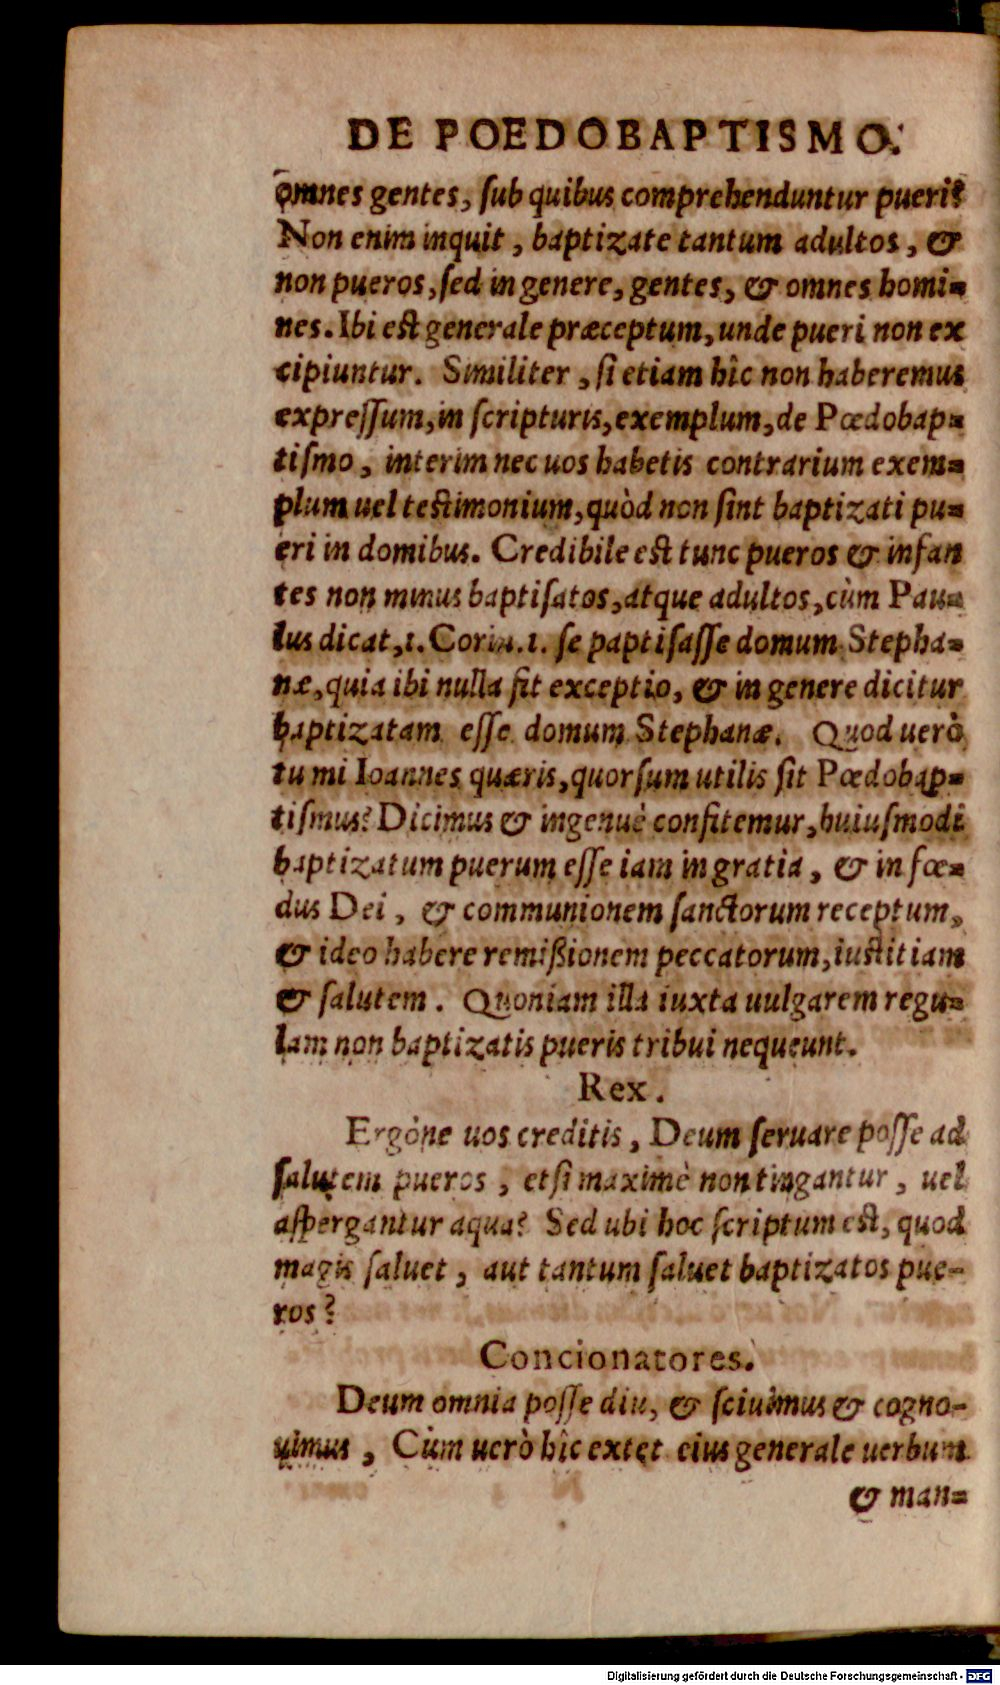 DE POEDOBAPTISMO.
omnes gentes, ſub quibus comprehenduntur pueri?
Non enim inquit, baptizate tantum adultos, &
non pueros, ſed in genere, gentes, & omnes homi=
nes. Ibi eſt generale præceptum, unde pueri non ex
cipiuntur. Similiter, ſi etiam hîc non haberemus
expreſſum, in ſcripturis, exemplum, de Pœdobap=
tiſmo, interim nec uos habetis contrarium exem=
plum uel teſtimonium, quòd non ſint baptizati pu=
eri in domibus. Credibile eſt tunc pueros & infan
tes non minus baptiſatos, atque adultos, cùm Pau=
lus dicat, 1. Corin. 1. ſe paptiſaſſe domum Stepha=
næ, quia ibi nulla fit exceptio, & in genere dicitur
baptizatam eſſe domum Stephanæ. Quod uerò
tu mi Ioannes quæris, quorſum utilis ſit Pœdobap=
tiſmus? Dicimus & ingenuè confitemur, huiuſmodi
baptizatum puerum eſſe iam in gratia, & in fœ=
dus Dei, & communionem ſanctorum receptum,
& ideo habere remißionem peccatorum, iuſtitiam
& ſalutem. Quoniam illa iuxta uulgarem regu=
lam non baptizatis pueris tribui nequeunt.
Rex.
Ergòne uos creditis, Deum ſeruare poſſe ad
ſalutem pueros, etſi maximè non tingantur, uel
aſpergantur aqua? Sed ubi hoc ſcriptum eſt, quod
magis ſaluet, aut tantum ſaluet baptizatos pue-
ros?
Concionatores.
Deum omnia poſſe diu, & ſciuimus & cogno-
uimus, Cùm uerò hîc extet eius generale uerbum
& man=
Digitalisierung gefördert durch die Deutsche Forschungsgemeinschaft - DFG